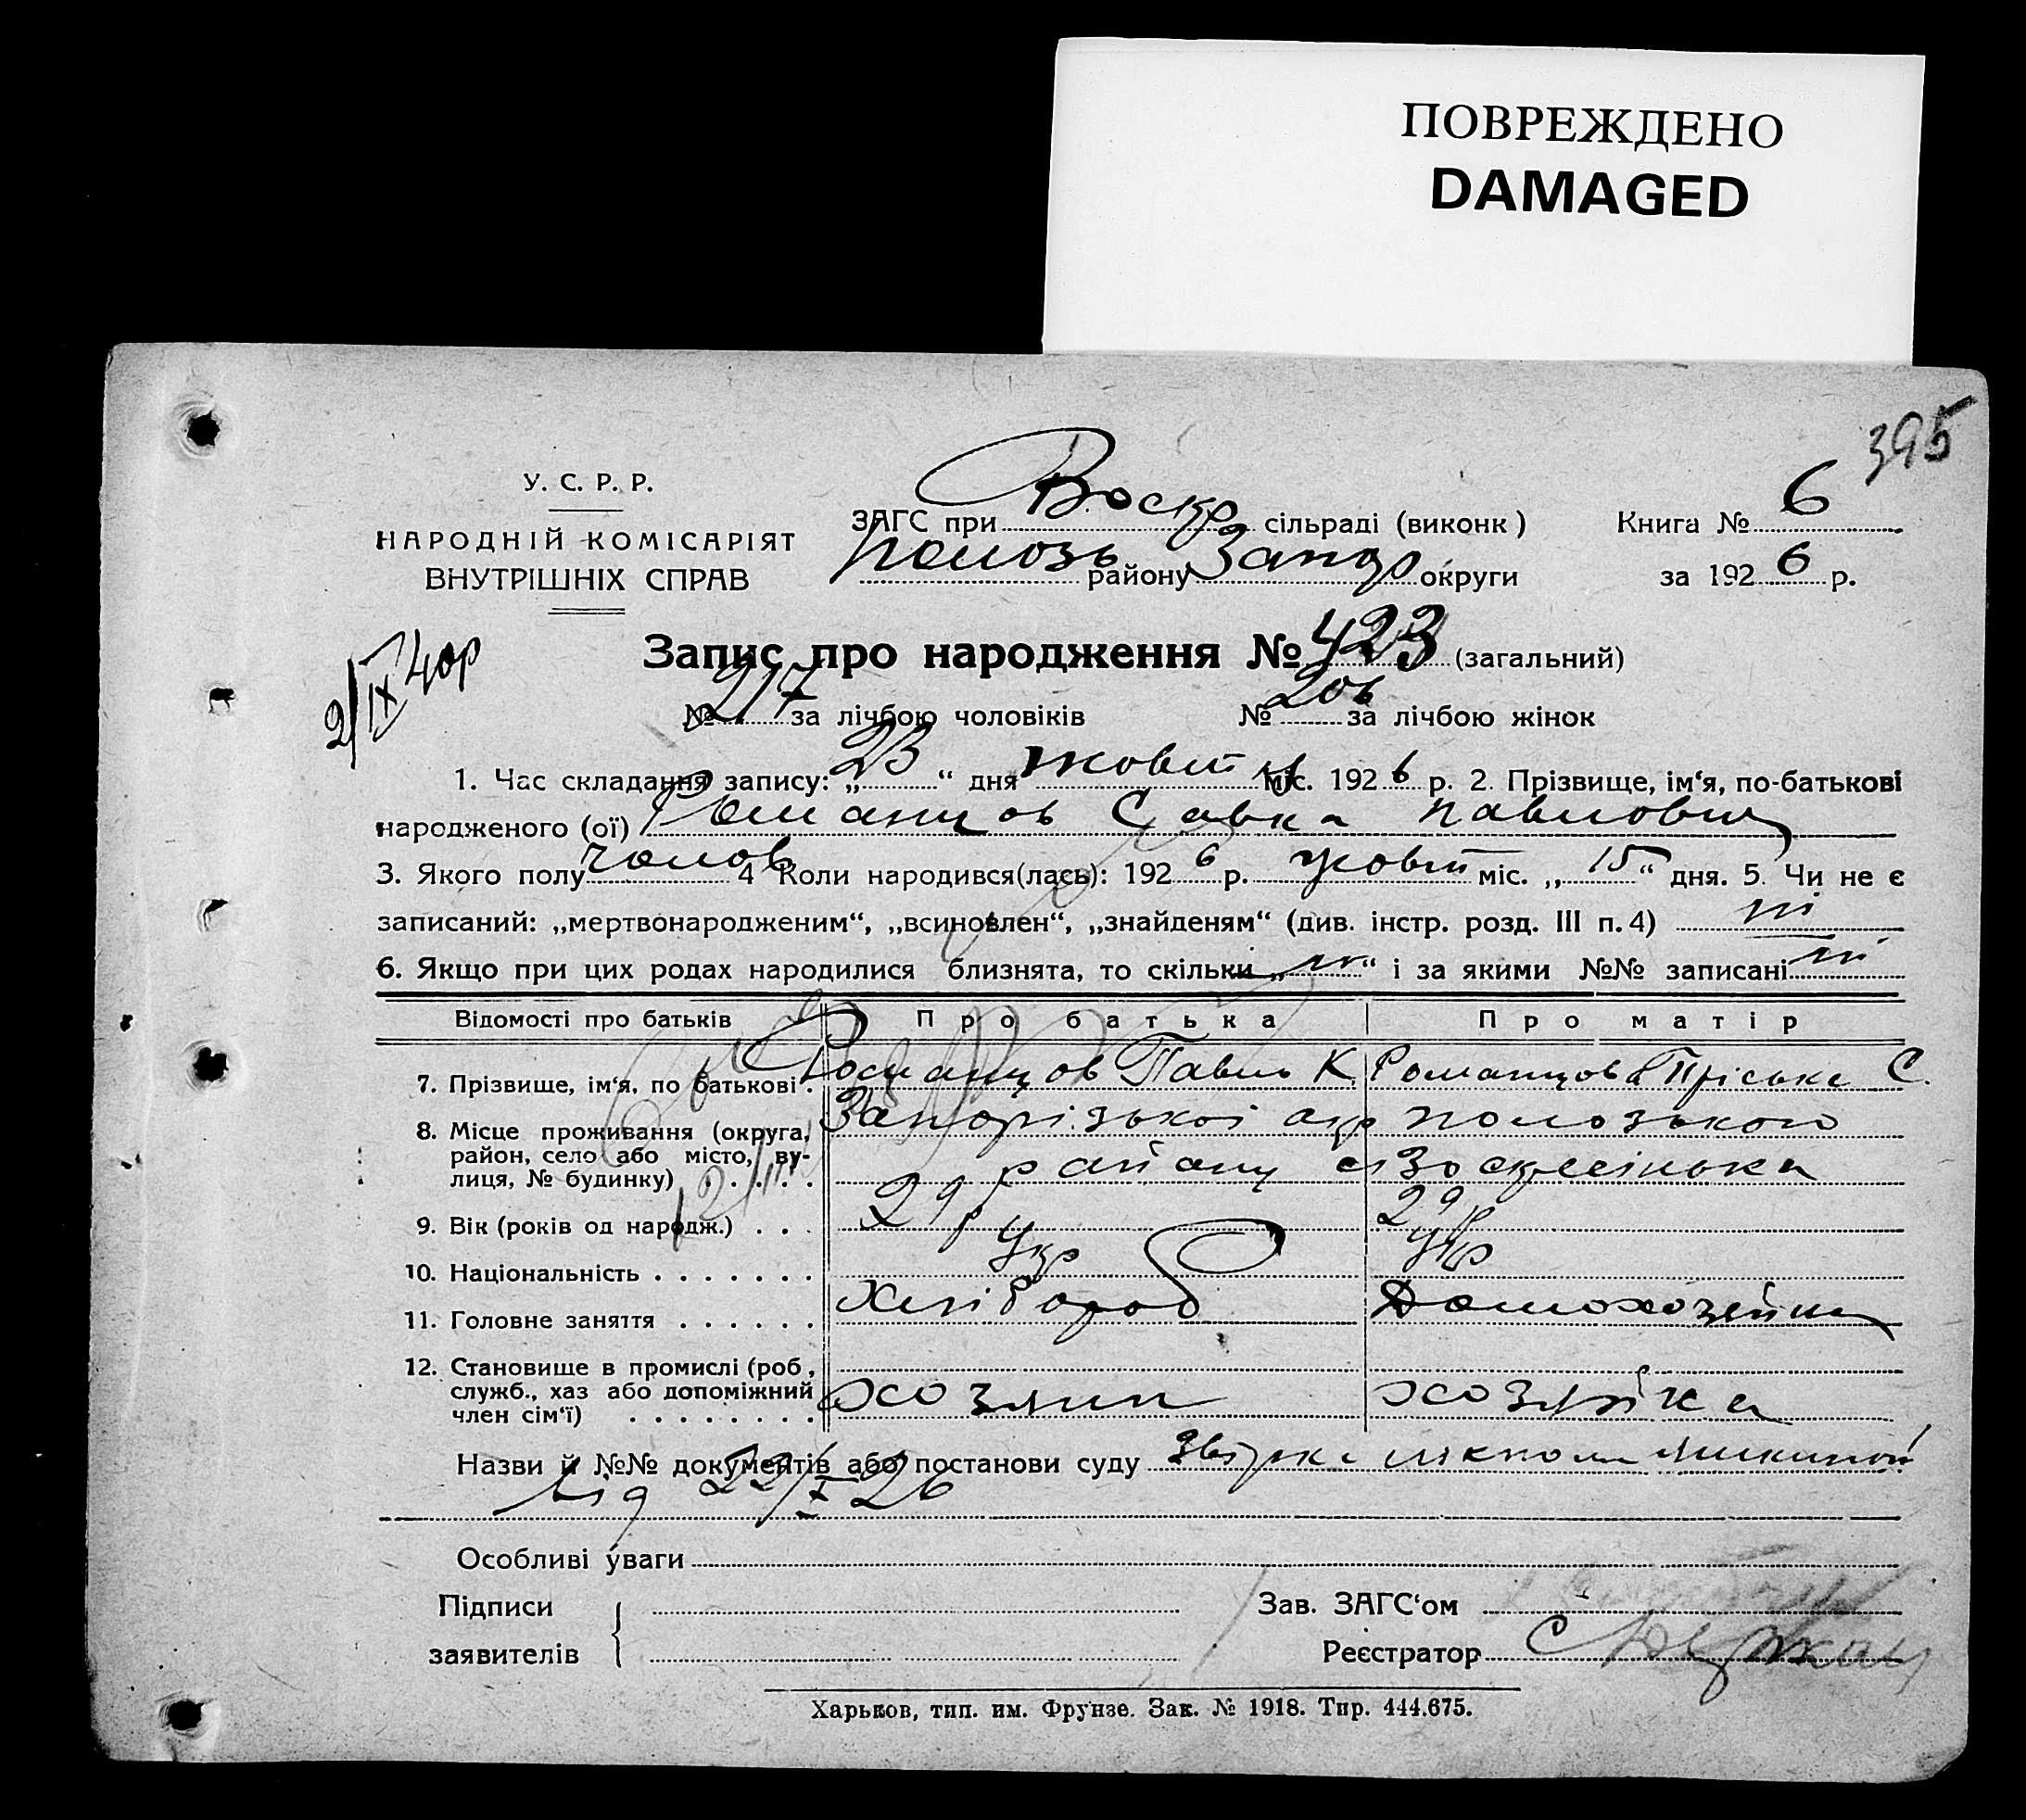 ПОВРЕЖДЕНО
DAMAGED
395
У. С. Р. Р.
НАРОДНІЙ КОМІСАРІЯТ
ВНУТРІШНІХ СПРАВ
ЗАГС при Воскр сільраді (виконк) Книга № 6
Полозь району Запор округи за 1926 р.
2/IX 40р
Запис про народження № 423 (загальний)
№ 217 за лічбою чоловіків № 206 за лічбою жінок
1. Час складання запису: „23“ дня жовтня міс. 1926 р. 2. Прізвище, ім‘я, по-батькові
народженого (ої) Романцов Савка Павлович
3. Якого полу чолов 4 Коли народився(лась): 1926 р. жовт міс. „15“ дня. 5. Чи не є
записаний: „мертвонародженим“, „всиновлен“, „знайденям“ (див. інстр. розд. III п. 4) ні
6. Якщо при цих родах народилися близнята, то скільки „ні“ і за якими №№ записані ні
Відомості про батьків Про батька Про матір
7. Прізвище, ім‘я, по батькові. Романцов Павло К. Романцова Пріська С.
8. Місце проживання (округа, Запорізької окр Полозького
район, село або місто, ву-
лиця, № будинку) . . . . . району с Воскресінька
9. Вік (років од народж.) . . . 29 р 29 р
10. Національність . . . . . . . Укр Укр
11. Головне заняття . . . . . . Хлібороб Домохозейка
12. Становище в промислі (роб,
служб., хаз або допоміжний
член сім‘ї) . . . . . . . . хозяин хозяйка
Назви й №№ документів або постанови суду
від 22/X 26
Особливі уваги
Підписи Зав. ЗАГС‘ом
заявителів Реєстратор
Харьков, тип. им. Фрунзе. Зак. № 1918. Тир. 444.675.